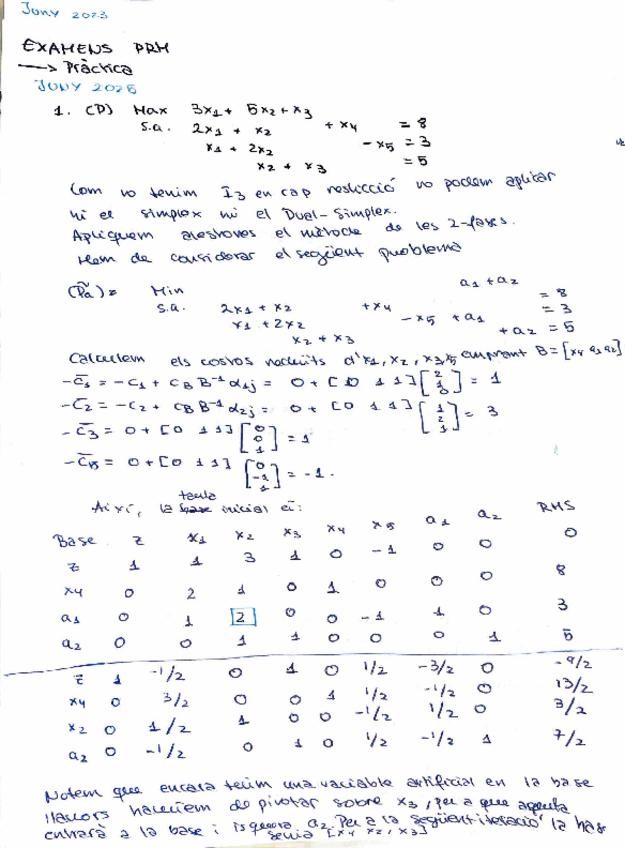 JUNY 2023
EXAMENS PRM
→ Pràctica
JUNY 2025
1. (P) Max 3x1 + 5x2 + x3
s.a. 2x1 + x2 + x4 = 8
x1 + 2x2 - x5 = 3
x2 + x3 = 5
Com no tenim I3 en cap restricció no podem aplicar
ni el simplex ni el Dual-Simplex.
Apliquem aleshores el mètode de les 2-fases.
Hem de considerar el següent problema
(Pa) = Min a1 + a2
s.a. 2x1 + x2 + x4 = 8
x1 + 2x2 - x5 + a1 = 3
x2 + x3 + a2 = 5
Calculem els costos reduïts d'x1, x2, x3, emprant B = [x4 a1 a2]
-c1 = -c1 + cB B^-1 α1j = 0 + [0 1 1] [2 1 0] = 1
-c2 = -c2 + cB B^-1 α2j = 0 + [0 1 1] [1 2 1] = 3
-c3 = 0 + [0 1 1] [0 0 1] = 1
-c5 = 0 + [0 1 1] [0 -1 1] = -1.
taula
Així, la base inicial és:
Base z x1 x2 x3 x4 x5 a1 a2 RHS
z 1 1 3 1 0 -1 0 0 0
x4 0 2 1 0 1 0 0 0 8
a1 0 1 2 0 0 -1 1 0 3
a2 0 0 1 1 0 0 0 1 5
z 1 -1/2 0 1 0 1/2 -3/2 0 -9/2
x4 0 3/2 0 0 1 1/2 -1/2 0 13/2
x2 0 1/2 1 0 0 -1/2 1/2 0 3/2
a2 0 -1/2 0 1 0 1/2 -1/2 1 7/2
Notem que encara tenim una variable artificial en la base
llavors hauríem de pivotar sobre x3, per a que aquesta
entrarà a la base i isquera a2. Per a la següent iteració la base
seria [x4 x2, x3]